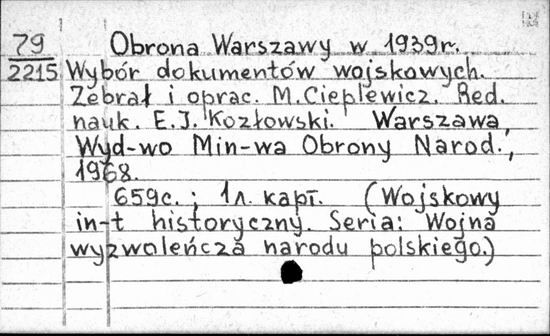 79
2215
Obrona Warszawy w 1939r.
Wybór dokumentów wojskowych.
Zebrał i oprac. M.Cieplewicz. Red.
nauk. E.J. Kozłowski. Warszawa,
Wyd-wo Min-wa Obrony Narod.,
1968.
659с.; 1л. карт. (Wojskowy
in-t historyczny. Seria: Wojna
wyzwoleńcza narodu polskiego.)